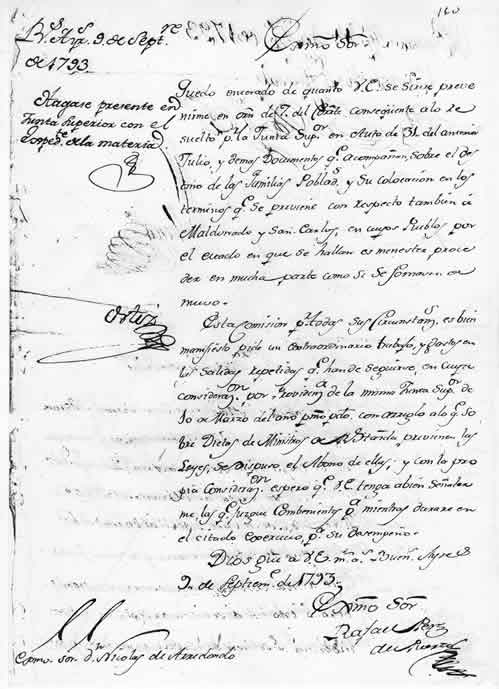 160
Bs. Ays. 9 de Septre
de 1793.
Hagase presente en
Junta Superior con el
Expedte. de la materia
Ortiz
Exmo Sor.
Quedo enterado de quanto V.E. se sirve preve
nirme en ofn. de 7. del Corrte. consequente a lo re
suelto pr. la Junta Supor. en Auto de 31. del anterior
Julio, y demas Documentos qe. acompañan, sobre el des
tino de las Familias Poblads. y su colocacion en los
terminos qe. se previene con respecto tambien a
Maldonado y San Carlos, en cuyos Pueblos por
el estado en que se hallan es menester proce
der en mucha parte como si se formasen de
nuevo.
Esta Comision pr. todas sus circunstans. es bien
manifiesto pide un extraordinario trabajo, y Gastos en
las Salidas repetidas qe. han de seguirse, en cuya
consideran. por Providena. de la misma Junta Supor. de
10 de Marzo del año pmo. pdo. con arreglo a lo qe. so
bre Dietas de Ministros de previenen las
Leyes, se dispuso el Abono de ellas; y con la pro
pia consideran. espero qe. V.E. tenga a bien Señalar
me las qe. juzgue Combenientes pa. mientras durare en
el citado exercicio, pa. su desempeño.
Dios gue. a V.E. ms. as. Buens. Ayres
9. de Septiemre. de 1793.
Exmo Sor
Rafael Perez
del Puerto
Exmo. Sor. Dn. Nicolas de Arredondo